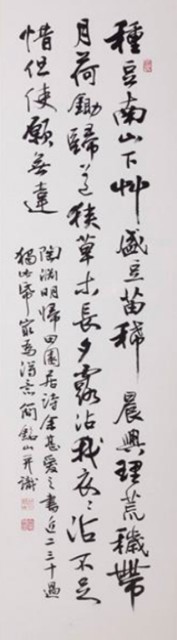 種豆南山下艸盛豆苗稀晨興理荒穢帶
月荷鋤歸道狹草木長夕露沾我衣〻沾不足
惜但使願無違
陶淵明歸田園居詩余甚愛之書近二三十過
獨此帋最為得意簡銘山并識